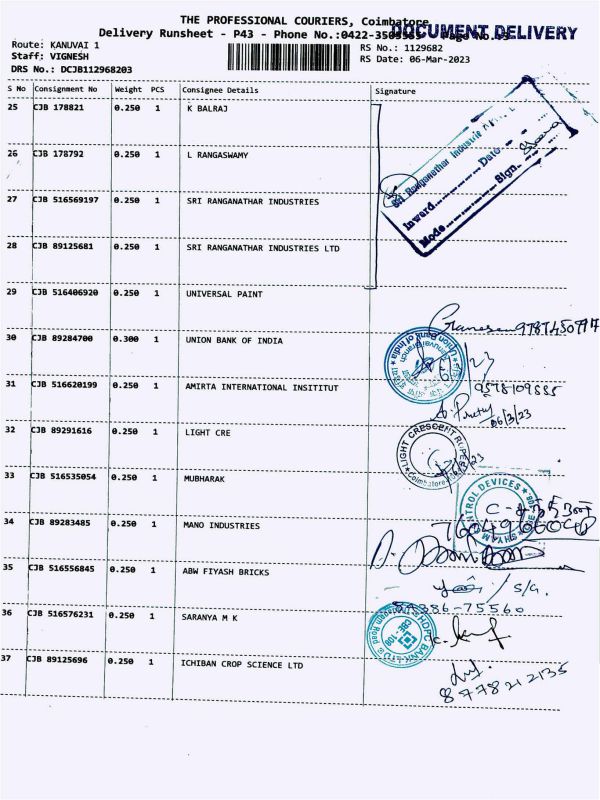 THE PROFESSIONAL COURIERS, Coimbatore
Delivery Runsheet - P43 - Phone No.:0422- Page No.:3
DOCUMENT DELIVERY
Route: KANUVAI 1
Staff: VIGNESH
DRS No.: DCJBI112968203
RS No.: 1129682
RS Date: 06-Mar-2023
S No Consignment No Weight PCS Consignee Details Signature
25 CJB 178821 0.250 1 K BALRAJ
26 CJB 178792 0.250 1 L RANGASWAMY
27 CJB 516569197 0.250 1 SRI RANGANATHAR INDUSTRIES
28 CJB 89125681 0.250 1 SRI RANGANATHAR INDUSTRIES LTD
Sri Ranganathar Industrie
Inward Date
Mode Sign.
29 CJB 516406920 0.250 1 UNIVERSAL PAINT
Ganesan
30 CJB 89284700 0.300 1 UNION BANK OF INDIA
Union Bank of India
31 CJB 516620199 0.250 1 AMIRTA INTERNATIONAL INSITITUT
9578109885
06/3/23
32 CJB 89291616 0.250 1 LIGHT CRE
LIGHT CRESCENT
Coimbatore
33 CJB 516535054 0.250 1 MUBHARAK
34 CJB 89283485 0.250 1 MANO INDUSTRIES
CONTROL DEVICES
SHYAM
35 CJB 516556845 0.250 1 ABW FIYASH BRICKS
75560
36 CJB 516576231 0.250 1 SARANYA M K
HDFC BANK LTD
37 CJB 89125696 0.250 1 ICHIBAN CROP SCIENCE LTD
8778212135